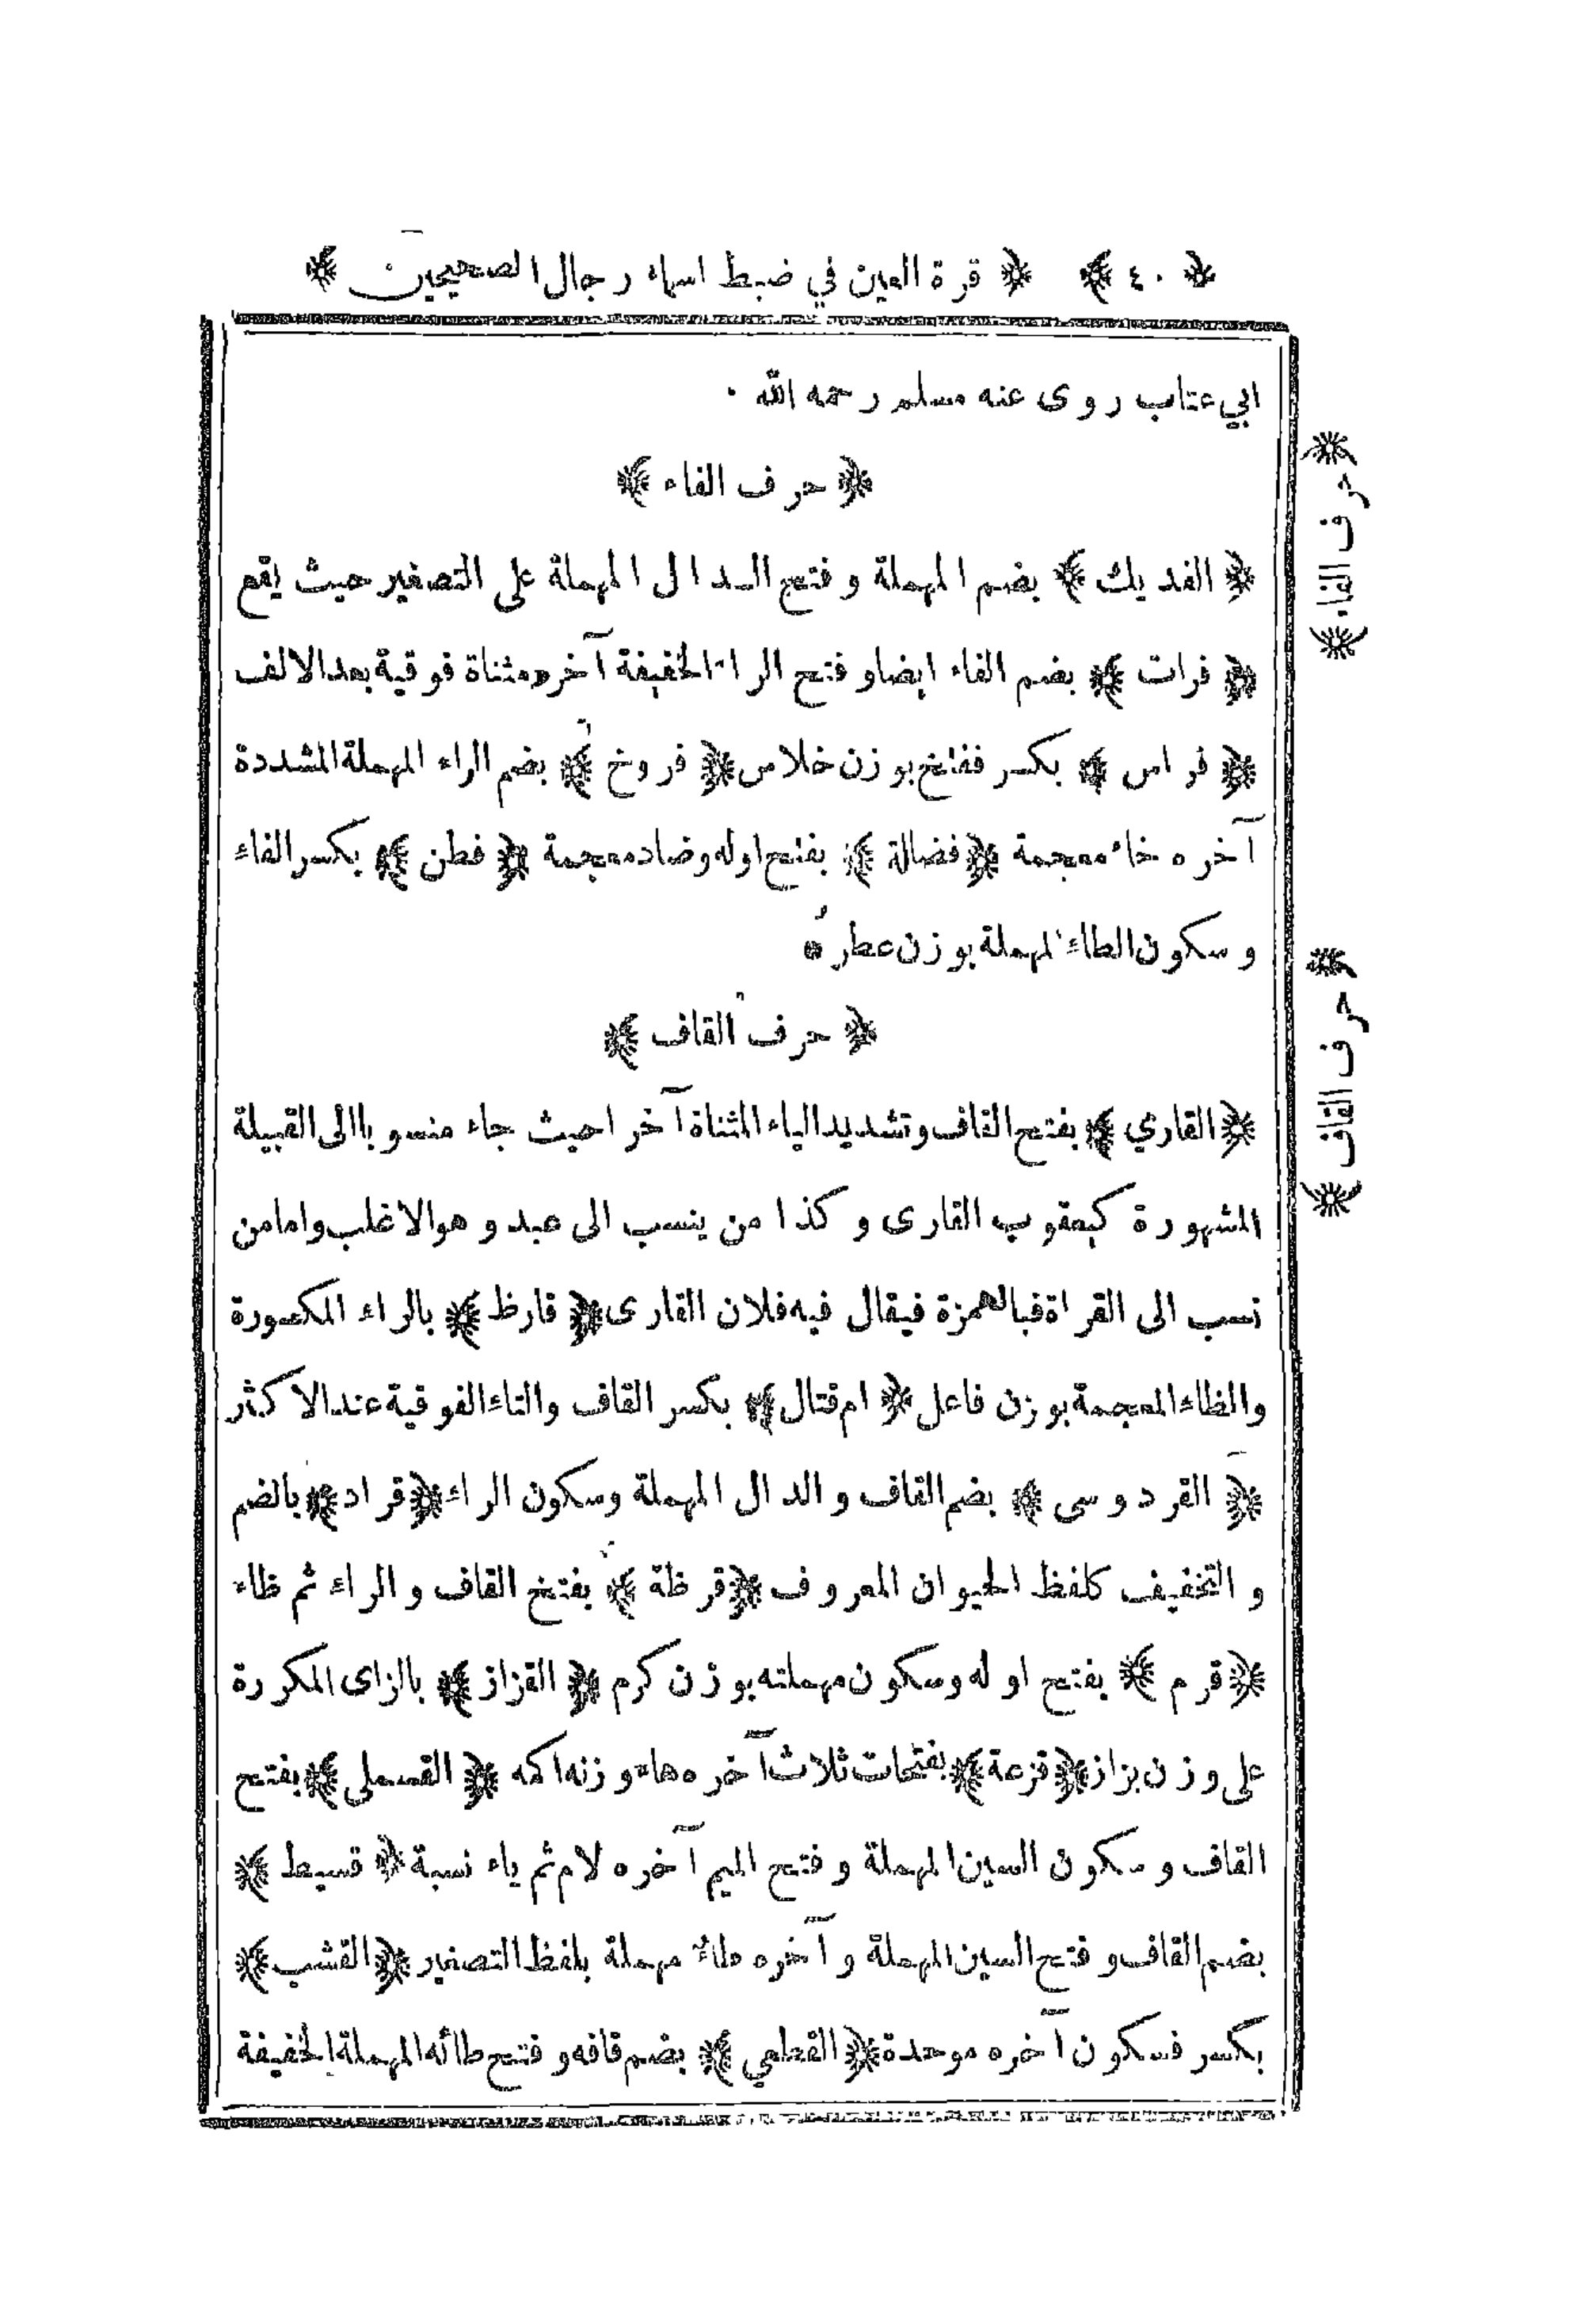 ﴿ ٤٠ ﴾ ﴿ قرة العين في ضبط اسماء رجال الصحيحين ﴾
ابي عتاب روى عنه مسلم رحمه الله ٠
﴿ حرف الفاء ﴾
﴿ الفديك ﴾ بضم المهملة وفتح الدال المهملة على التصغير حيث يقع
﴿ فرات ﴾ بضم الفاء ايضا وفتح الراء الخفيفة آخره مثناة فوقية بعد الالف
﴿ فراس ﴾ بكسر ففتح بوزن خلاص ﴿ فروخ ﴾ بضم الراء المهملة المشددة
آخره خاء معجمة ﴿ فضالة ﴾ بفتح اوله وضاد معجمة ﴿ فطن ﴾ بكسر الفاء
وسكون الطاء المهملة بوزن عطر ه
﴿ حرف القاف ﴾
﴿ القاري ﴾ بفتح القاف وتشديد الياء المثناة آخرا حيث جاء منسوبا الى القبيلة
المشهورة كيعقوب القارى وكذا من ينسب الى عبد وهو الاغلب واما من
نسب الى القراة فبالهمزة فيقال فيه فلان القارى ﴿ قارظ ﴾ بالراء المكسورة
والظاء المعجمة بوزن فاعل ﴿ ام قتال ﴾ بكسر القاف والتاء الفوقية عند الاكثر
﴿ القردوسى ﴾ بضم القاف والدال المهملة وسكون الراء ﴿ قراد ﴾ بالضم
والتخفيف كلفظ الحيوان المعروف ﴿ قرظة ﴾ بفتح القاف والراء ثم ظاء
﴿ قرم ﴾ بفتح اوله وسكون مهملته بوزن كرم ﴿ القزاز ﴾ بالزاى المكررة
على وزن بزاز ﴿ قزعة ﴾ بفتحات ثلاث آخره هاء وزنه اكمه ﴿ القسملى ﴾ بفتح
القاف وسكون السين المهملة وفتح الميم آخره لام ثم ياء نسبة ﴿ قسيط ﴾
بضم القاف وفتح السين المهملة وآخره طاء مهملة بلفظ التصغير ﴿ القشب ﴾
بكسر فسكون آخره موحدة ﴿ القطعي ﴾ بضم قافه وفتح طائه المهملة الخفيفة
﴿ حرف الفاء ﴾
﴿ حرف القاف ﴾